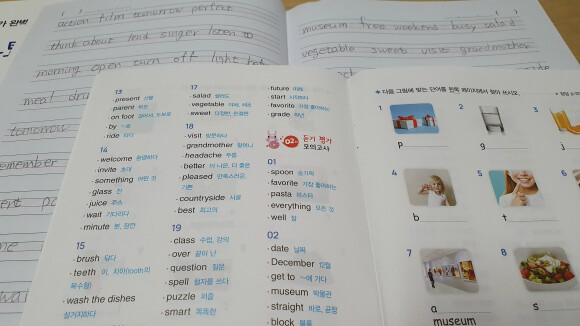 action film tomorrow perfect
think about find singer listen to
morning open turn off light
meal
tomorrow
museum free weekend busy salad
vegetable sweet visit grandmother
13
· present 선물
· parent 부모
· on foot 걸어서, 도보로
· by ~로
· ride 타다
14
· welcome 환영하다
· invite 초대
· something 어떤 것
· glass 잔
· juice 주스
· wait 기다리다
· minute 분, 잠깐
15
· brush 닦다
· teeth 이, 치아(tooth의
복수형)
· wash the dishes
설거지하다
17
· salad 샐러드
· vegetable 야채, 채소
· sweet 다정한, 친절한
18
· visit 방문하다
· grandmother 할머니
· headache 두통
· better 더 나은, 더 좋은
· pleased 만족스러운,
기쁜
· countryside 시골
· best 최고의
19
· class 수업, 강의
· over 끝이 난
· question 질문
· spell 철자를 쓰다
· puzzle 퍼즐
· smart 똑똑한
· future 미래
· start 시작하다
· favorite 가장 좋아하는
· grade 학년
02. 듣기 평가
모의고사
01
· spoon 숟가락
· favorite 가장 좋아하는
· pasta 파스타
· everything 모든 것
· well 잘
02
· date 날짜
· December 12월
· get to ~에 가다
· museum 박물관
· straight 바로, 곧장
· block 블록
★ 다음 그림에 맞는 단어를 왼쪽 페이지에서 찾아 쓰시오.
1
2
3
p
g
j
4
5
6
b
t
7
8
a
s
museum